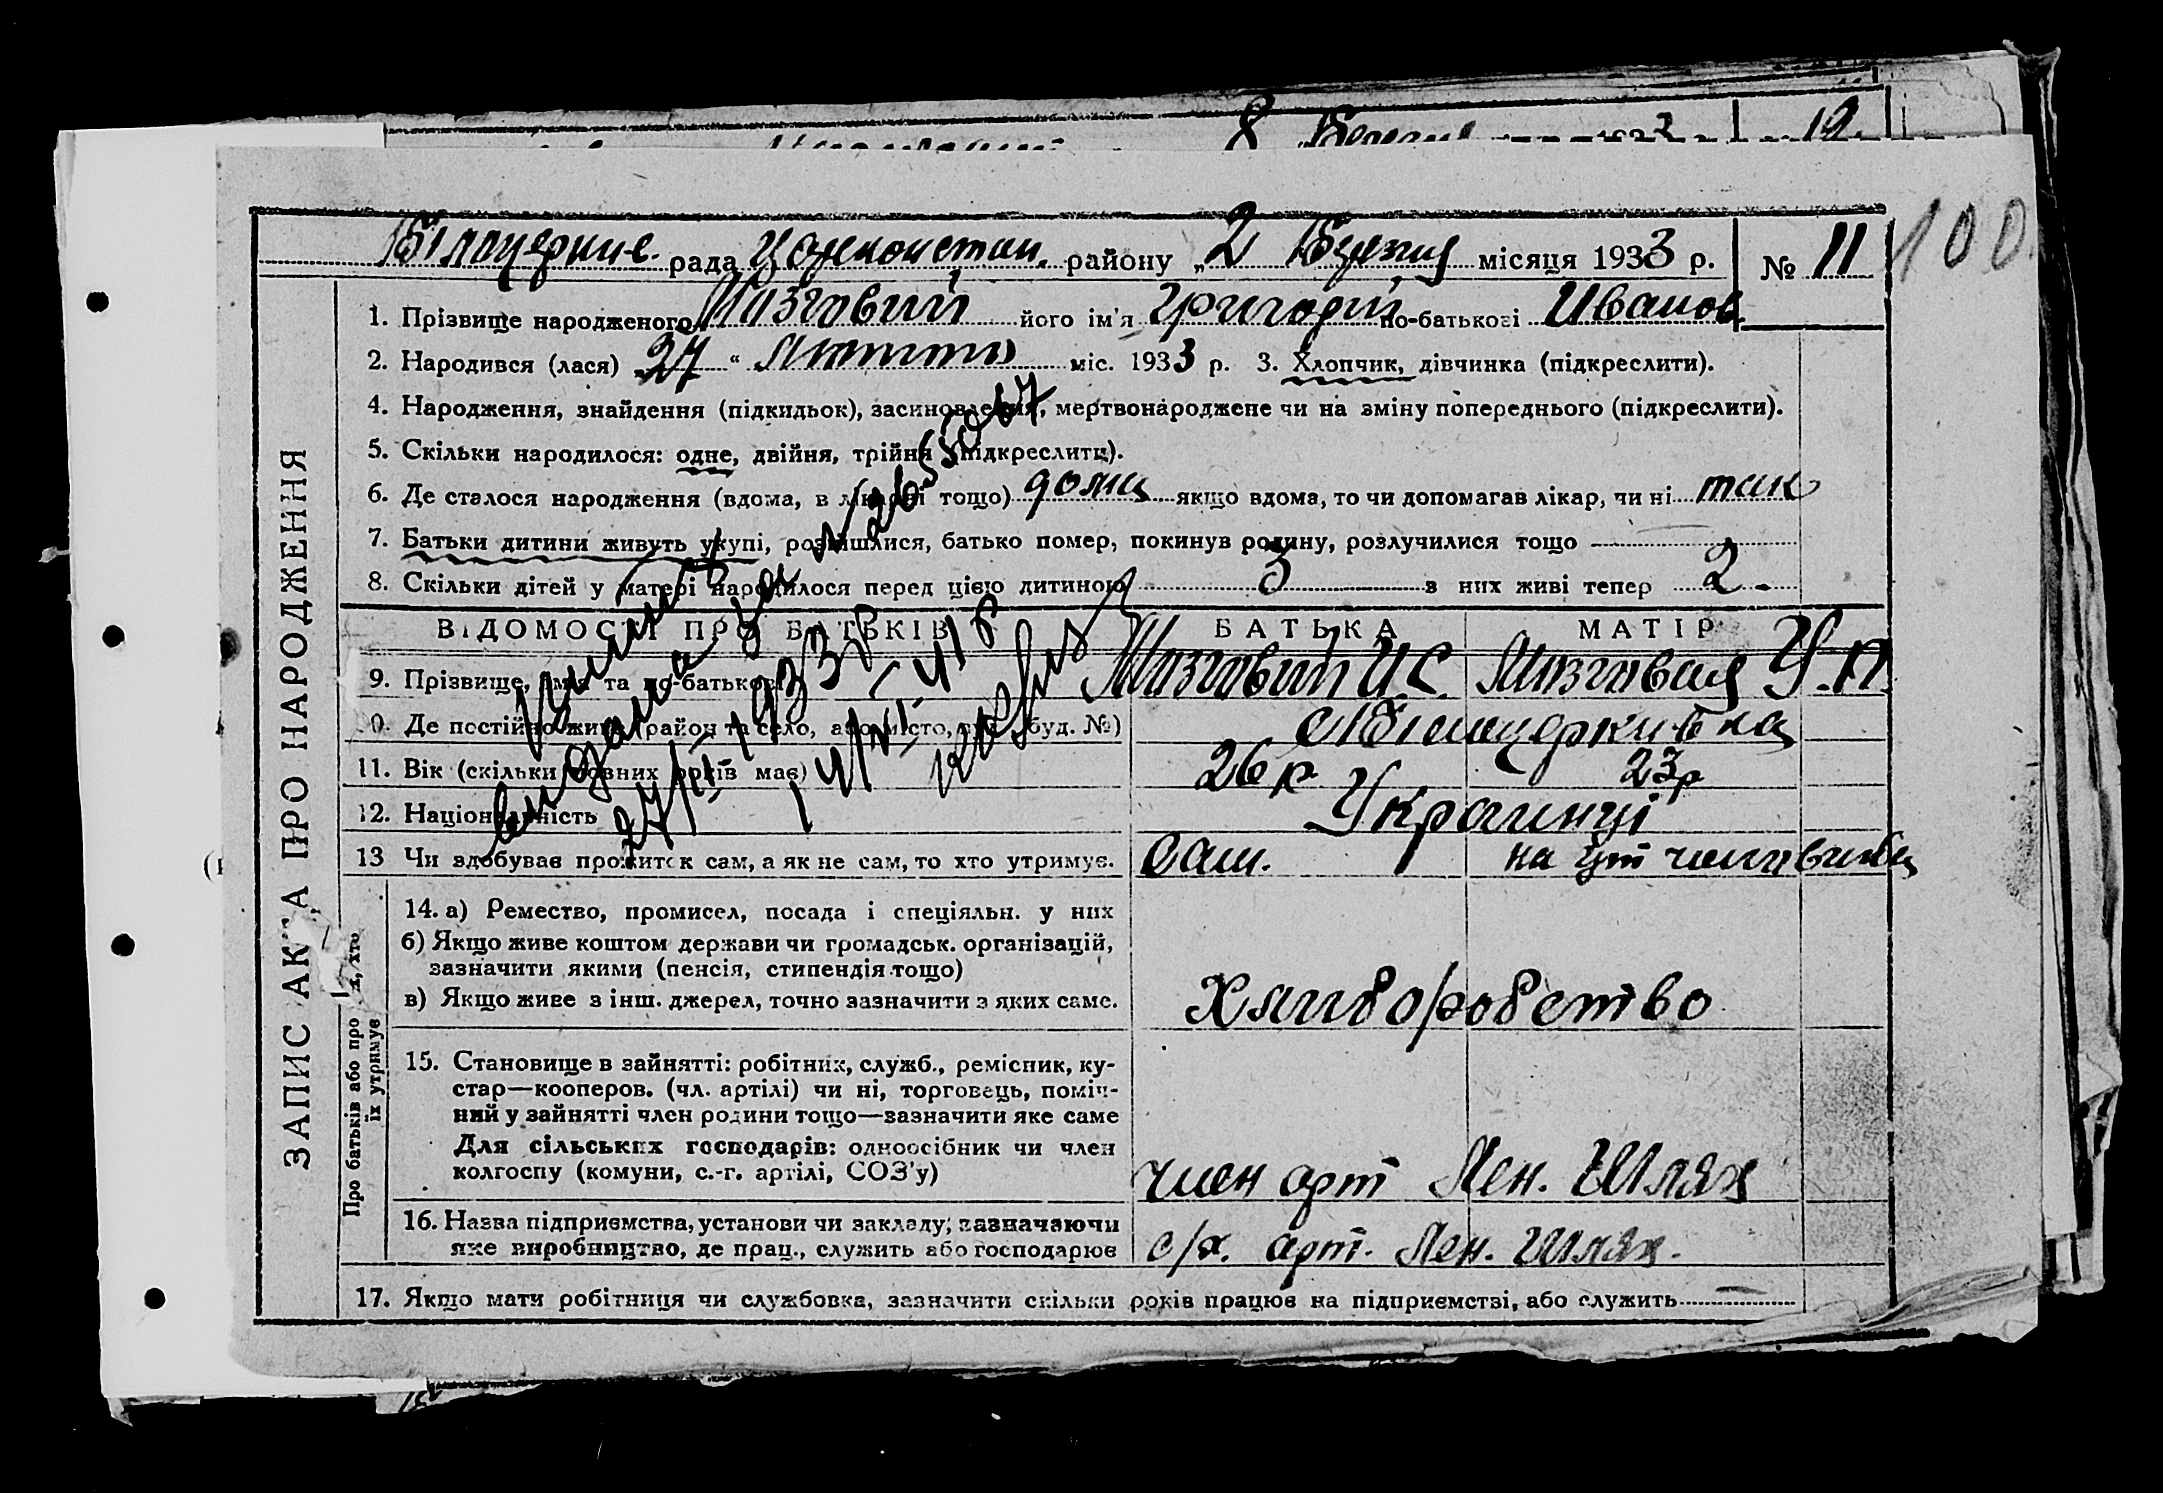 8 Березня
12
100
Білоцеркив. рада районy „2 Березня місяця 1933 р. № 11
1. Прізвище народженого Мозговий його ім'я Григорій по-батькові Иванов
2. Народився (лася) „27“ Лютого міс. 1933 р. 3. Хлопчик, дівчинка (підкреслити).
4. Народження, знайдення (підкидьок), засиновлення, мертвонароджене чи на зміну попереднього (підкреслити).
5. Скільки народилося: одне, двійня, трійня (підкреслити).
6. Де сталося народження (вдома, в лікарні тощо) дома якщо вдома, то чи допомагав лікар, чи ні так
7. Батьки дитини живуть укупі, розійшлися, батько помер, покинув родину, розлучилися тощо
8. Скільки дітей у матері народилося перед цією дитиною 3 з них живі тепер 2.
ВІДОМОСТІ ПРО БАТЬКІВ БАТЬКА МАТІР
9. Прізвище, ім'я та по-батькові Мозговий И.С. Мозговая У.П.
10. Де постійно живе (район та село, або місто, вул., буд. №) с Білоцеркивка
11. Вік (скільки повних років має) 26 р 23 р
12. Національність Украинці
13 Чи здобував прожиток сам, а як не сам, то хто утримує. Сам. на ут чоловика
14. а) Ремество, промисел, посада і спеціяльн. у них
б) Якщо живе коштом держави чи громадськ. організацій,
зазначити якими (пенсія, стипендія тощо)
в) Якщо живе з інш. джерел, точно зазначити з яких саме.
Хлиборобство
15. Становище в зайнятті: робітник, служб., ремісник, ку-
стар—кооперов. (чл. артілі) чи ні, торговець, поміч-
ний у зайнятті член родини тощо—зазначити яке саме
Для сільських господарів: одноосібник чи член
колгоспу (комуни, с.-г. артілі, СОЗ'у)
член арт Лен. Шлях
16. Назва підприємства, установи чи закладу, зазначаючи
яке виробництво, де прац., служить або господарює
с/х. арт. Лен. Шлях.
17. Якщо мати робітниця чи службовка, зазначити скільки років працює на підприємстві, або служить
ЗАПИС АКТА ПРО НАРОДЖЕННЯ
Про батьків або про
їх утримує
видана за №
27/II 1933 р